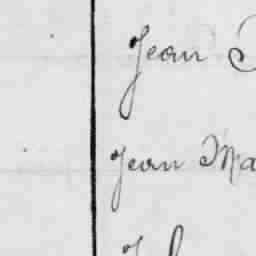 Jean
Jean Ma